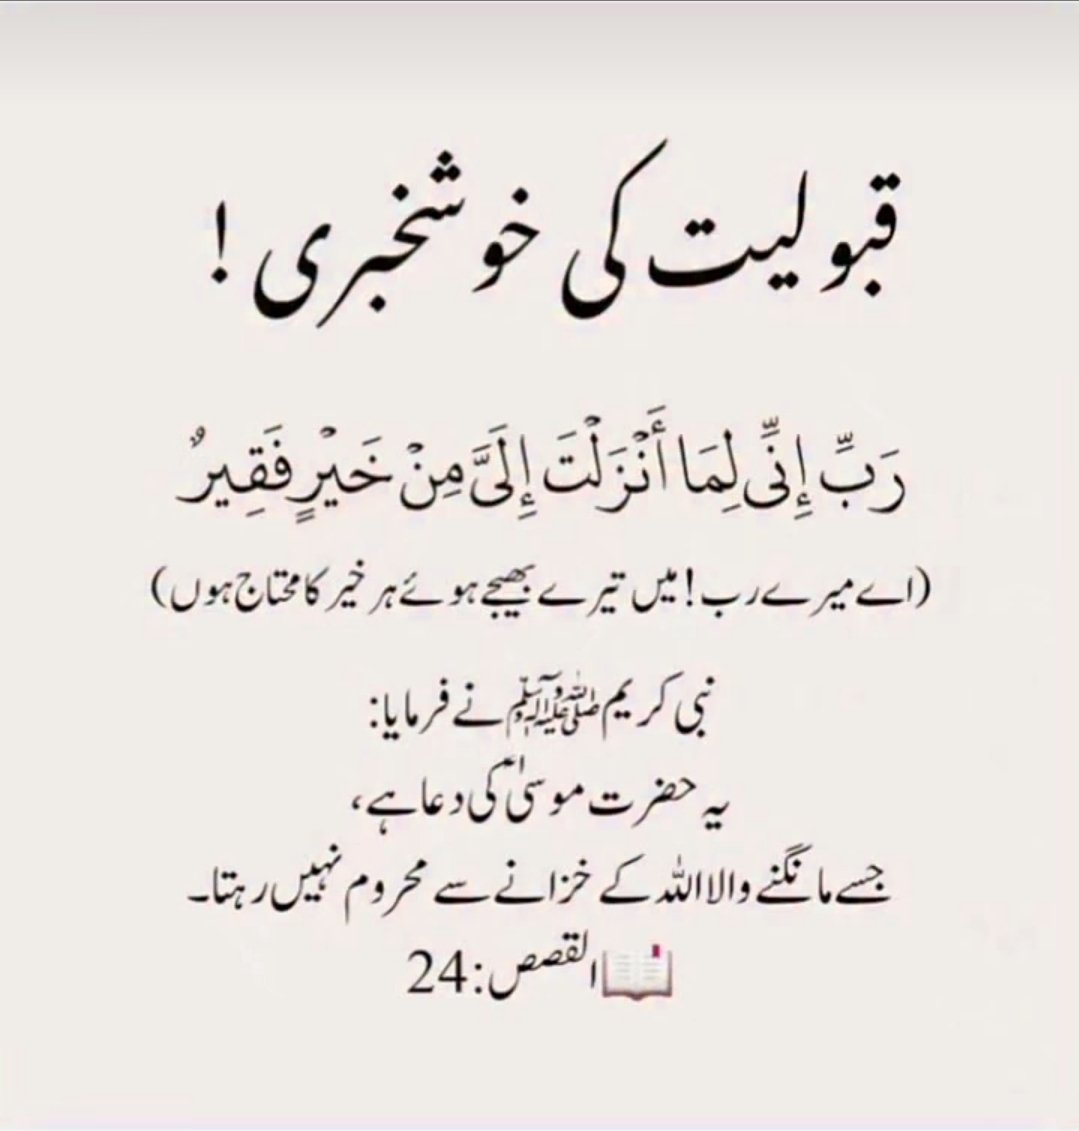 قبولیت کی خوشخبری !
رَبِّ إِنِّى لِمَا أَنْزَلْتَ إِلَىَّ مِنْ خَيْرٍ فَقِيرٌ
(اے میرے رب! میں تیرے بھیجے ہوئے ہر خیر کا محتاج ہوں)
نبی کریم ﷺ نے فرمایا:
یہ حضرت موسیٰؑ کی دعا ہے،
جسے مانگنے والا اللہ کے خزانے سے محروم نہیں رہتا۔
📖القصص:24